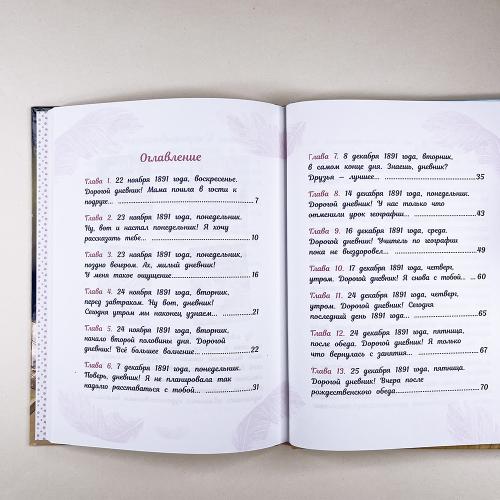 Оглавление
Глава 1. 22 ноября 1891 года, воскресенье.
Дорогой дневник! Мама пошла в гости к
подруге... 7
Глава 2. 23 ноября 1891 года, понедельник.
Ну, вот и настал понедельник! Я хочу
рассказать тебе... 10
Глава 3. 23 ноября 1891 года, понедельник,
поздно вечером. Ах, милый дневник!
У меня такое ощущение... 16
Глава 4. 24 ноября 1891 года, вторник,
перед завтраком. Ну вот, дневник!
Сегодня утром мы наконец узнаем... 21
Глава 5. 24 ноября 1891 года, вторник,
начало второй половины дня. Дорогой
дневник! Всё большее волнение... 22
Глава 6. 7 декабря 1891 года, понедельник.
Поверь, дневник! Я не планировала так
надолго расставаться с тобой... 31
Глава 7. 8 декабря 1891 года, вторник,
в самом конце дня. Знаешь, дневник?
Друзья — лучшее... 35
Глава 8. 14 декабря 1891 года, понедельник.
Дорогой дневник! У нас только что
отменили урок географии... 43
Глава 9. 16 декабря 1891 года, среда.
Дорогой дневник! Учитель по географии
пока не выздоровел... 49
Глава 10. 17 декабря 1891 года, четверг,
утром. Дорогой дневник! Я снова с тобой... 60
Глава 11. 24 декабря 1891 года, четверг,
утром. Дорогой дневник! Сегодня
последний день 1891 года... 65
Глава 12. 24 декабря 1891 года, пятница,
после обеда. Дорогой дневник! Я только
что вернулась с занятия... 67
Глава 13. 25 декабря 1891 года, пятница.
Дорогой дневник! Вчера после
рождественского обеда 70